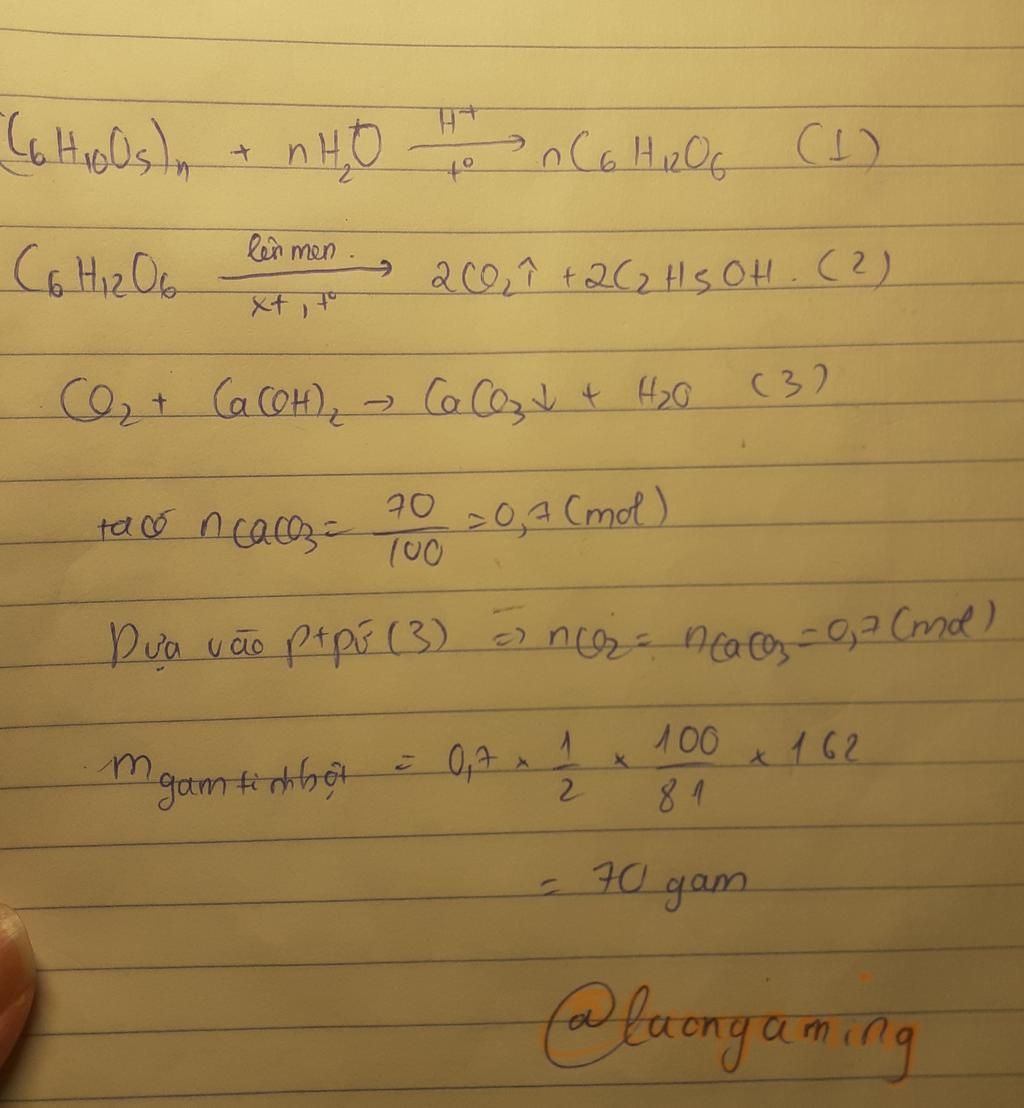 (C₆H₁₀O₅)ₙ + nH₂O —H⁺, t°→ nC₆H₁₂O₆ (1)
C₆H₁₂O₆ —lên men. xt, t°→ 2CO₂↑ + 2C₂H₅OH. (2)
CO₂ + Ca(OH)₂ → CaCO₃↓ + H₂O (3)
ta có nCaCO₃ = 70/100 = 0,7 (mol)
Dựa vào ptpứ (3) => nCO₂ = nCaCO₃ = 0,7 (mol)
m gam tinh bột = 0,7 × 1/2 × 100/81 × 162
= 70 gam
@luongaming